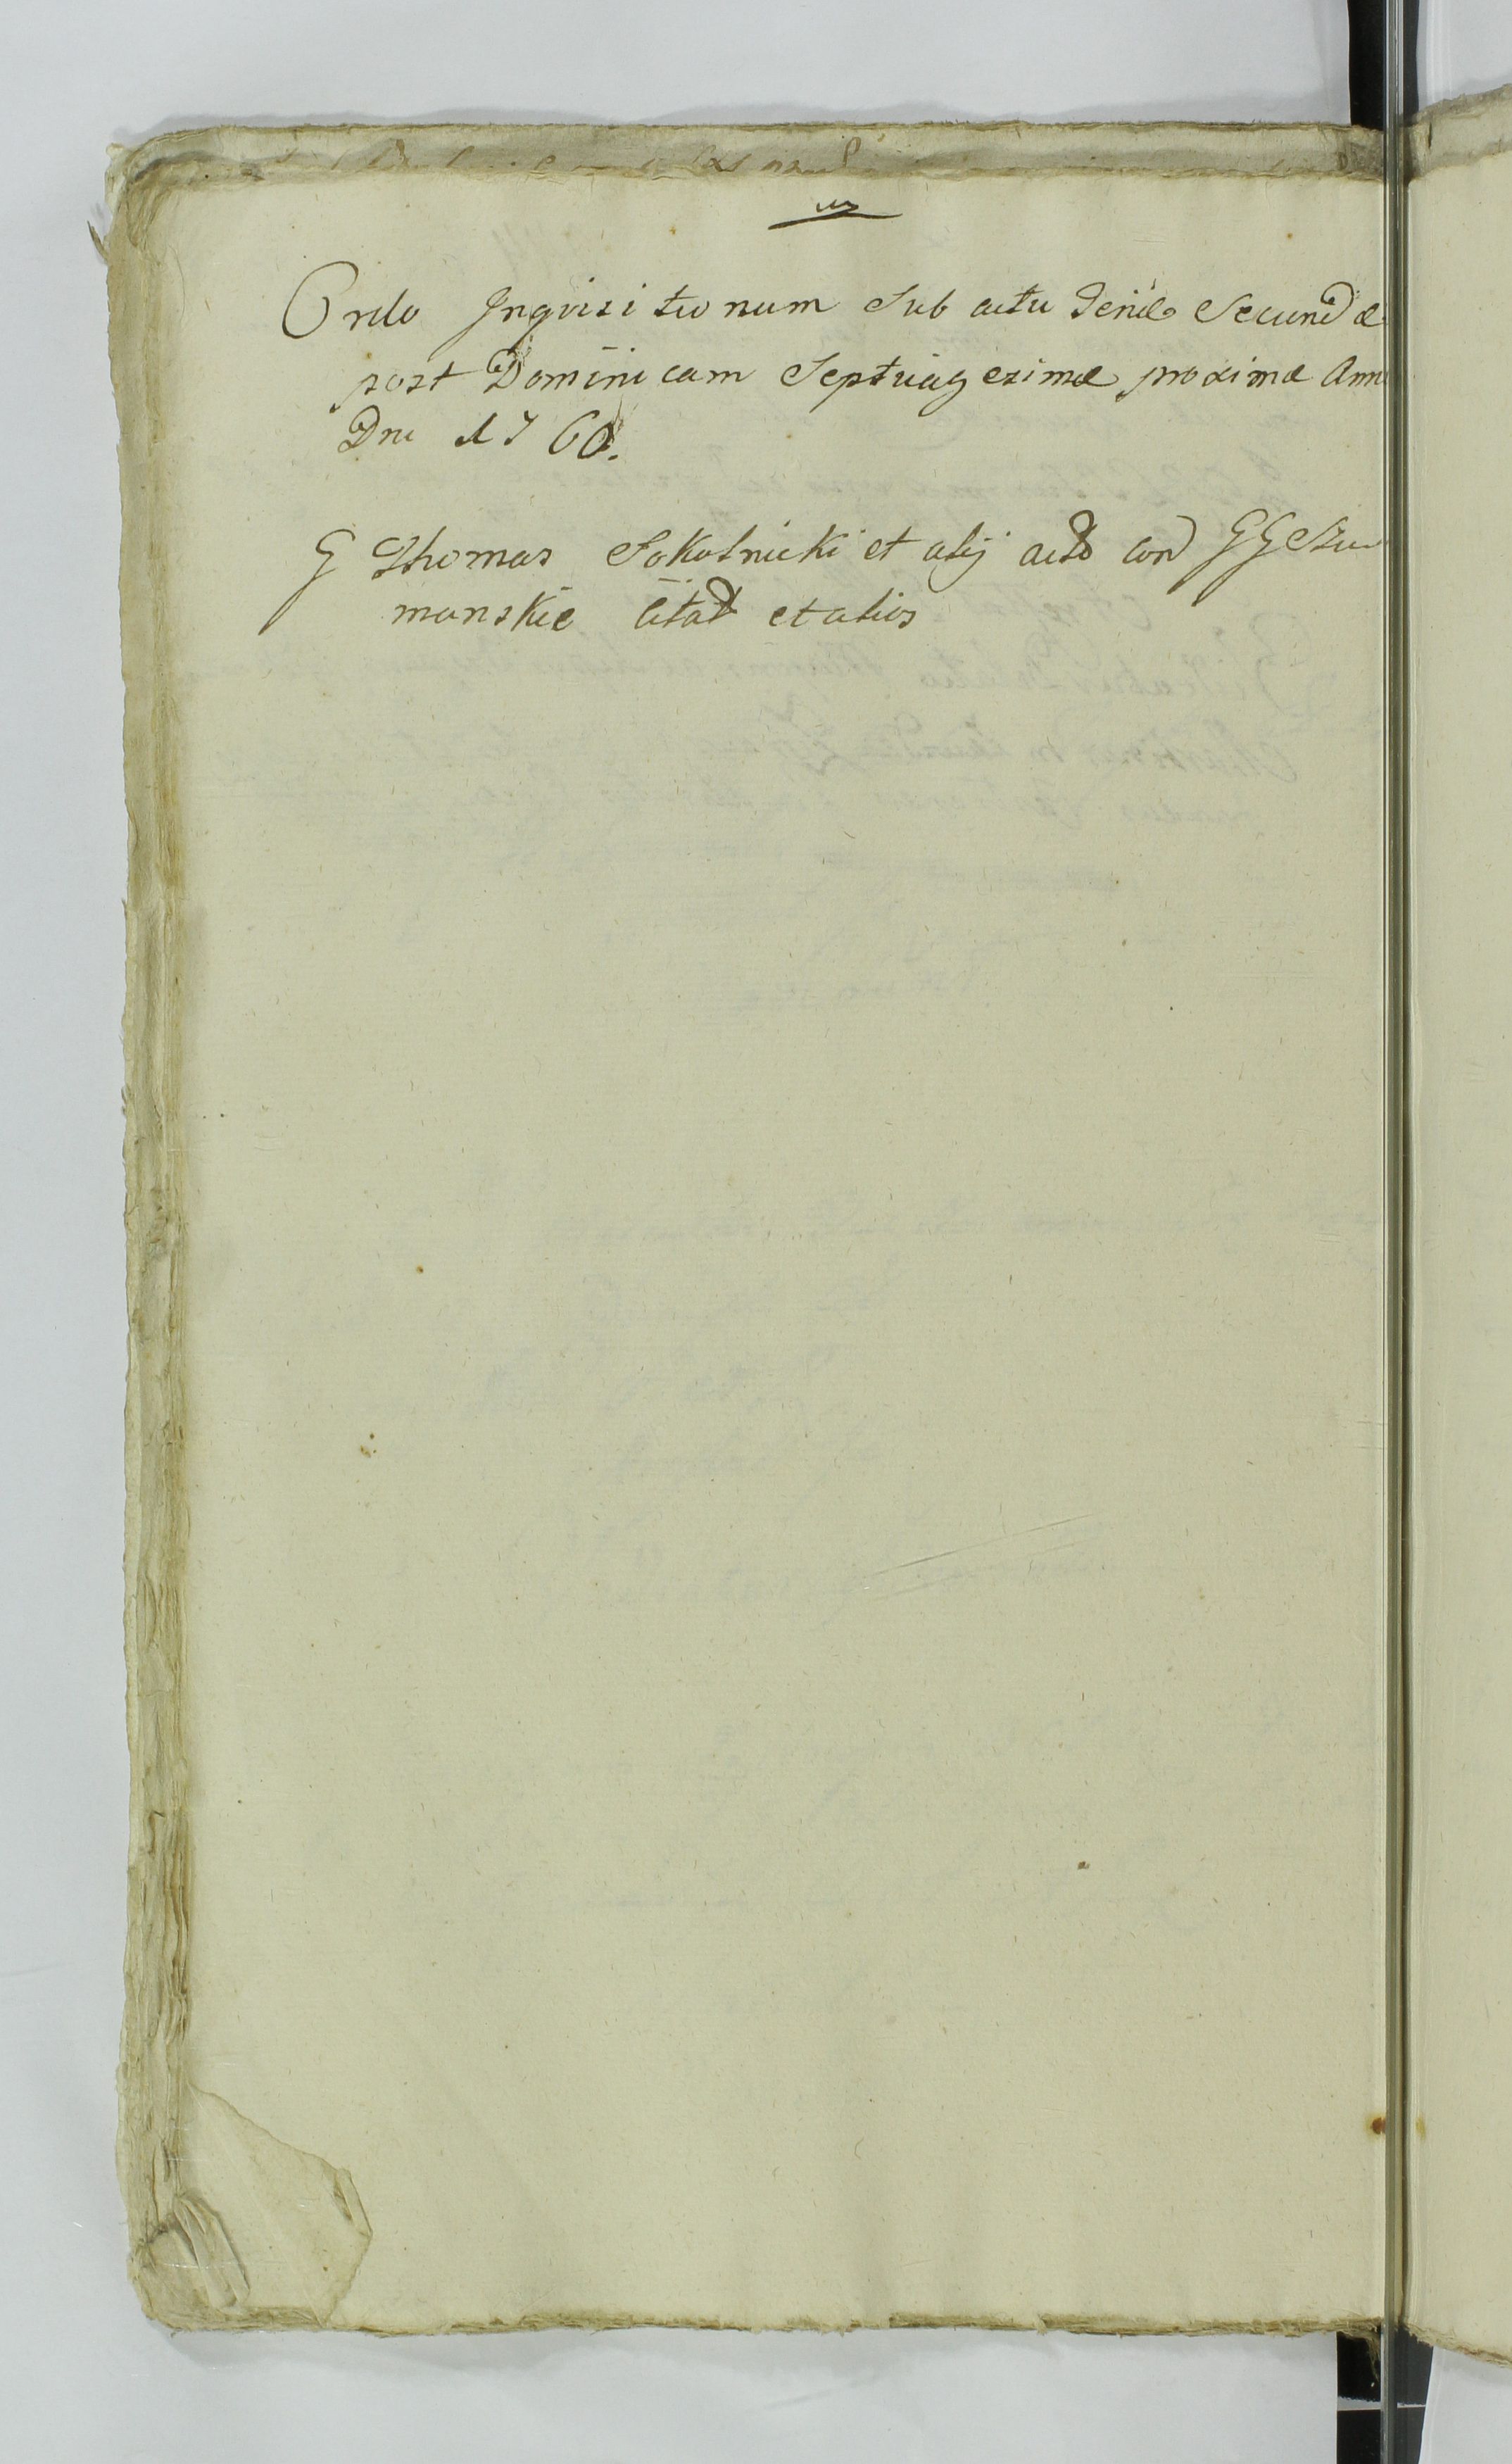 Ordo Inqvisitionum Sub actu Feriæ Secundæ
post Dominicam Septuagesimæ proximæ Ann
Dni 1760.
G Thomas Sokolnicki et alij acto con GG Szu
manskie citat et alios